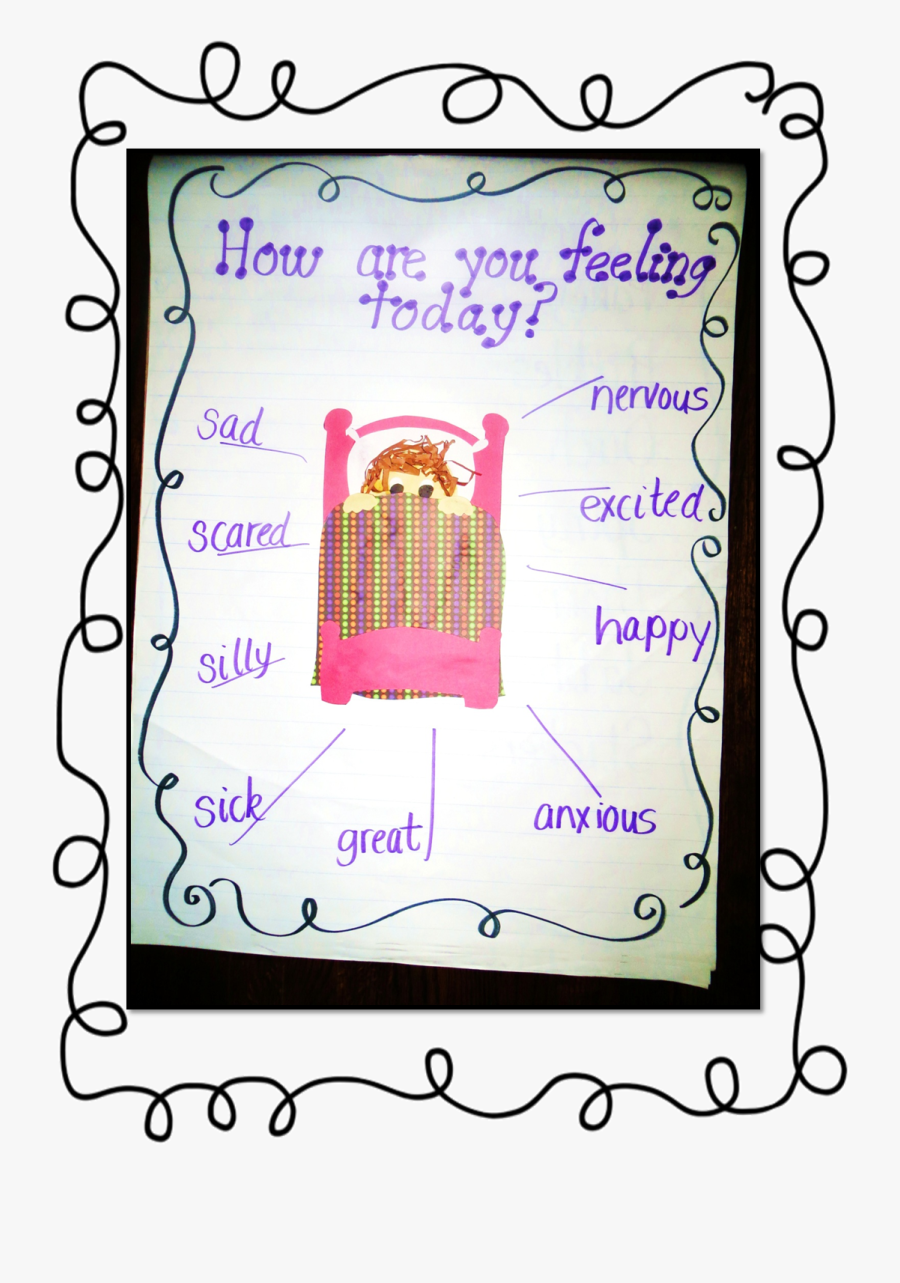 How are you feeling
today?
nervous
sad
excited
scared
happy
silly
sick
anxious
great